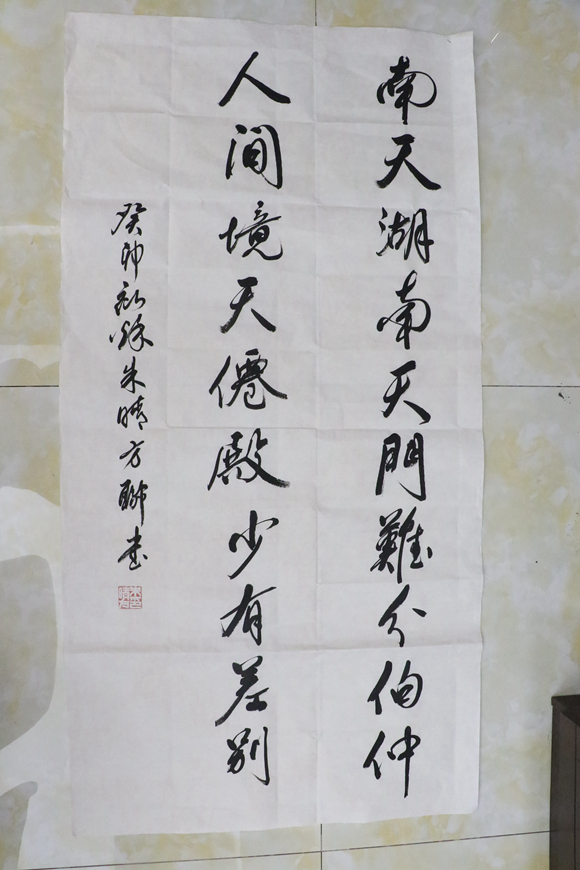 南天湖南天門難分伯仲
人間境天僊殿少有差別
癸卯秋朱晴方聯書